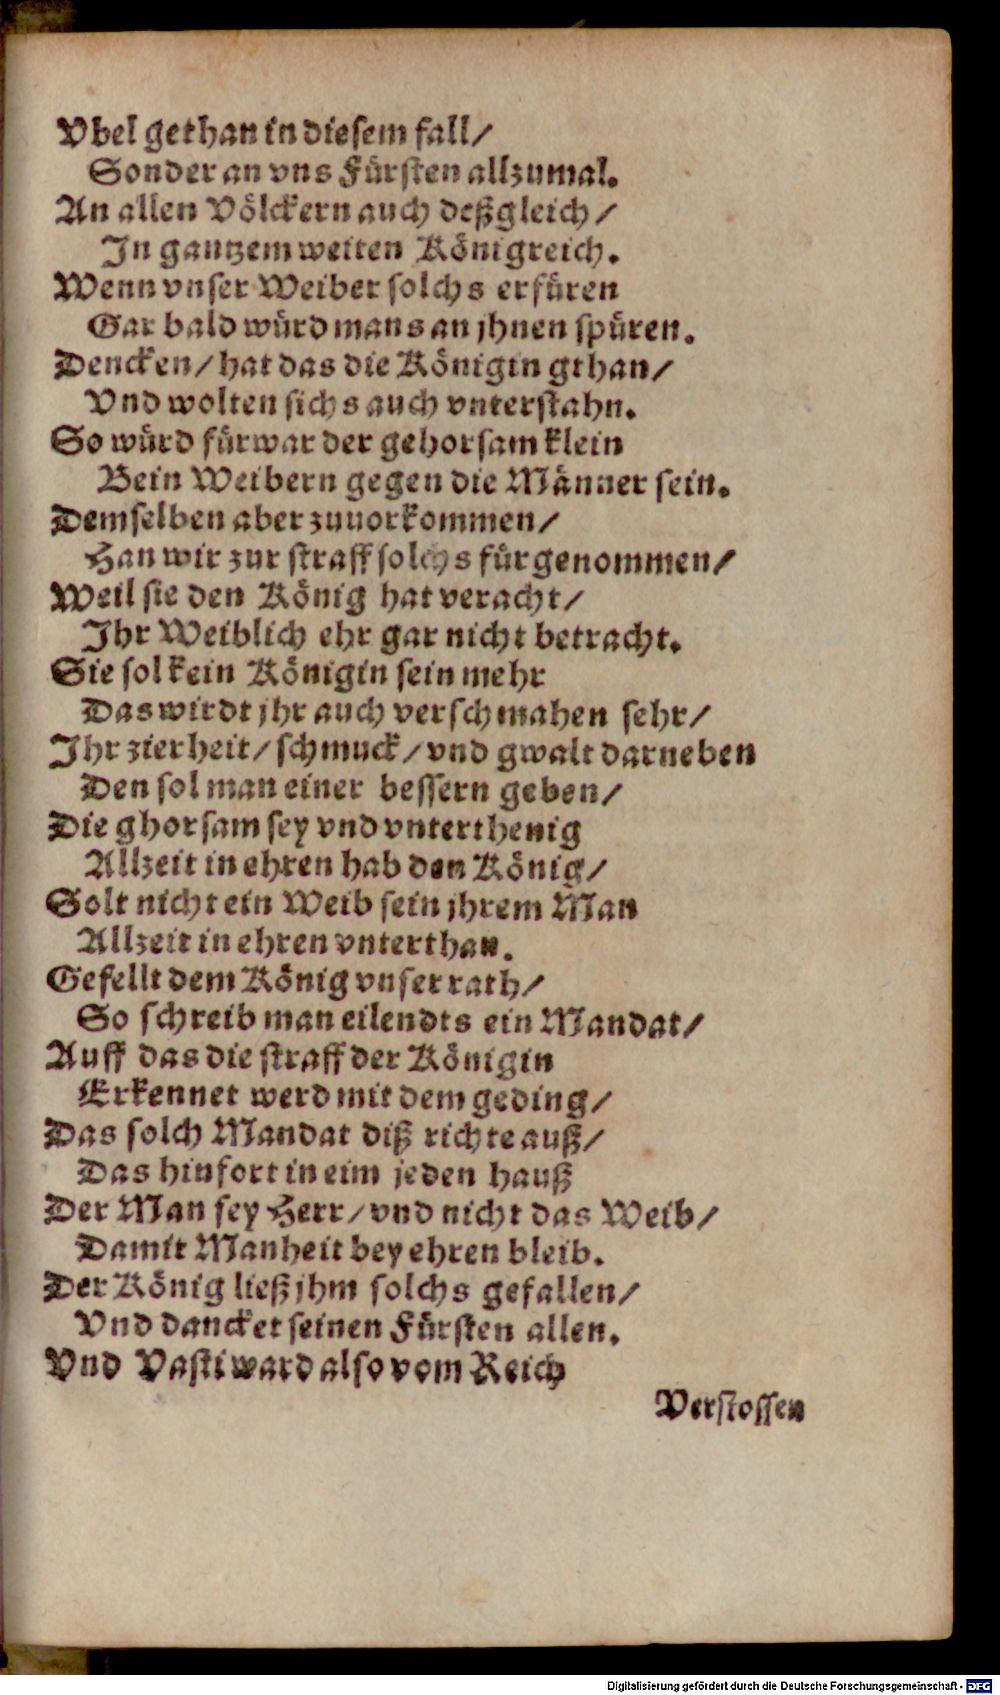 Vbel gethan in diesem fall/
Sonder an vns Fürsten allzumal.
An allen Völckern auch deßgleich/
In gantzem weiten Königreich.
Wenn vnser Weiber solchs erfüren
Gar bald würd mans an jhnen spüren.
Dencken/ hat das die Königin gthan/
Vnd wolten sichs auch vnterstahn.
So würd fürwar der gehorsam klein
Bein Weibern gegen die Männer sein.
Demselben aber zuuorkommen/
Han wir zur straff solchs fürgenommen/
Weil sie den König hat veracht/
Ihr Weiblich ehr gar nicht betracht.
Sie sol kein Königin sein mehr
Das wirdt jhr auch verschmahen sehr/
Ihr zierheit/ schmuck/ vnd gwalt darneben
Den sol man einer bessern geben/
Die ghorsam sey vnd vnterthenig
Allzeit in ehren hab den König/
Solt nicht ein Weib sein jhrem Man
Allzeit in ehren vnterthan.
Gefellt dem König vnser rath/
So schreib man eilendts ein Mandat/
Auff das die straff der Königin
Erkennet werd mit dem geding/
Das solch Mandat diß richte auß/
Das hinfort in eim jeden hauß
Der Man sey Herr/ vnd nicht das Weib/
Damit Manheit bey ehren bleib.
Der König ließ jhm solchs gefallen/
Vnd dancket seinen Fürsten allen.
Vnd Vasti ward also vom Reich
Verstossen
Digitalisierung gefördert durch die Deutsche Forschungsgemeinschaft - DFG